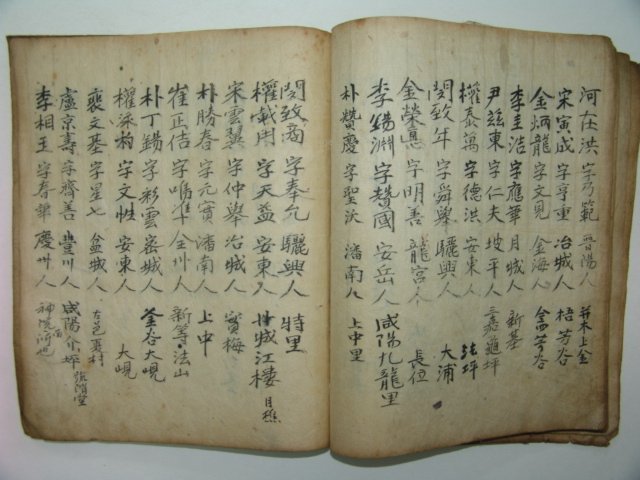 河在洪 字乃範 晉陽人 幷木上金
宋寅成 字亨重 冶城人 梧芳谷
金炳龍 字文見 金海人 金芳谷
李圭浩 字應華 月城人 新基
尹玆東 字仁夫 坡平人 嘉龜坪
權泰萬 字德洪 安東人 坪
閔致年 字舜擧 驪興人 大浦
金榮悳 字明善 龍宮人 長恒
李錫淵 字贊國 安岳人 咸陽九龍里
朴贊慶 字聖汝 潘南人 上中里
閔致商 字奉允 驪興人 特里
權載用 字天益 安東人 城江樓
宋雲翼 字仲擧 冶城人 梅
朴勝春 字元實 潘南人 上中
崔正佶 字 全州人 新等法山
朴丁錫 字彩雲 密城人 釜谷大峴
權 字文性 安東人 大峴
裵文基 字星七 盆城人 古邑東村
盧京壽 字齊善 豊川人 咸陽介坪
李相玉 字春華 慶州人 神院